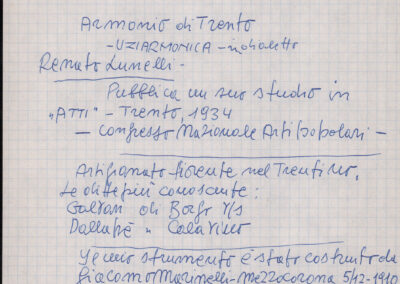 Armonio di Trento
- UZIARMONICA - in dialetto
Renato Lunelli -
Pubblica un suo studio in
"ATTI" - Trento, 1934
- Congresso Nazionale Arti Popolari -
Artigianato fiorente nel Trentino.
Le ditte più conosciute:
Galvan di Borgo V/s
Dallapè " Calavino
strumento è stato costruito da
Giacomo Marinelli - Mezzocorona 5/12-1910